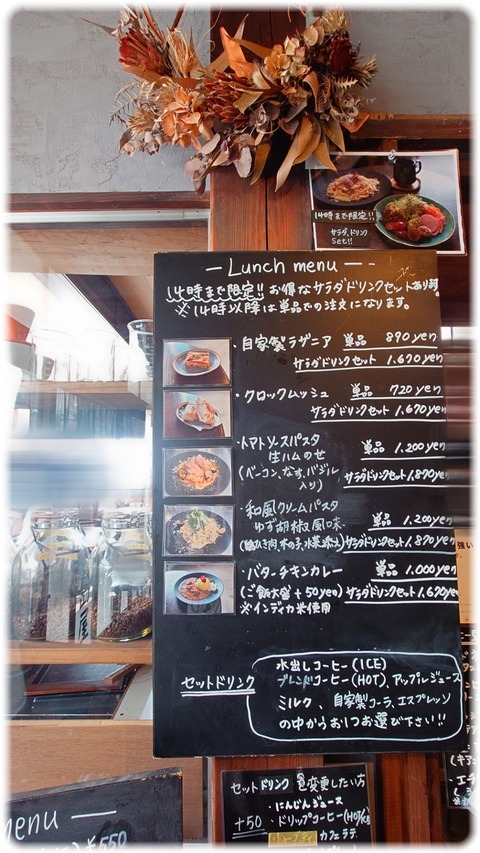 14時まで限定!!
サラダ、ドリンク
Set!!
— Lunch menu —
14時まで限定!! お得なサラダドリンクセット有り〼。
※14時以降は単品での注文になります。
・自家製ラザニア 単品 890yen
サラダドリンクセット 1,670yen
・クロックムッシュ 単品 720yen
サラダドリンクセット 1,670yen
・トマトソースパスタ
生ハムのせ 単品 1,200yen
(ベーコン、なす、バジル サラダドリンクセット 1,870yen
入り)
・和風クリームパスタ
ゆず胡椒風味 単品 1,200yen
(鶏ひき肉、木の子、水菜 サラダドリンクセット 1,870yen
・バターチキンカレー 単品 1,000yen
(ご飯大盛+50yen) サラダドリンクセット 1,670yen
※インディカ米使用
セットドリンク
水出しコーヒー(ICE)
ブレンドコーヒー(HOT)、アップルジュース
ミルク、自家製コーラ、エスプレッソ
の中からお1つお選び下さい!!
セットドリンクを変更したい方
・にんじんジュース
+50 ・ドリップコーヒー(HOT/
カフェラテ
menu —
¥550
強い